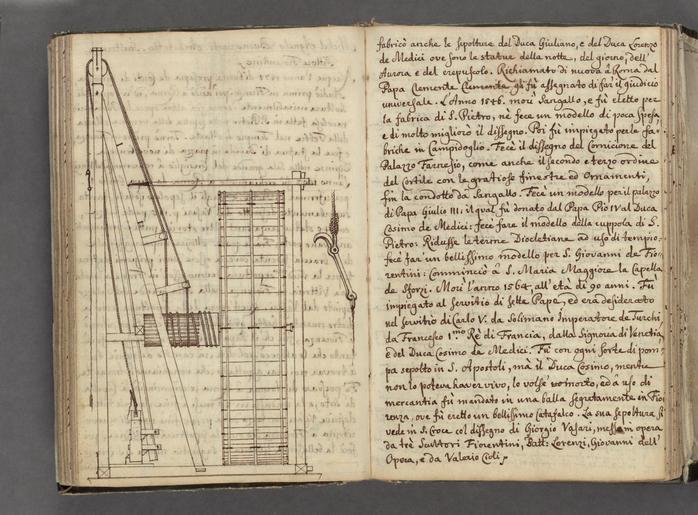 fabricò anche le sepolture del Duca Giuliano, e del Duca Lorenzo
de Medici ove sono le statue della notte, del giorno, dell'
Aurora e del crepuscolo. Richiamato di nuovo à Roma dal
Papa Clemente Clemente gli fù assegnato di far il giudicio
universale. L'Anno 1546. morì Sangallo, e fù eletto per
la fabrica di S. Pietro, nè fece un modello di poca spesa,
e di molto migliorò il dissegno. Poi fù impiegato per le fa-
briche in Campidoglio. Fece il dissegno del Cornicione del
Palazzo Farnesio, come anche il secondo e terzo ordine
del Cortile con le gratiose finestre ed Ornamenti,
fin là condotto da Sangallo. Fece un modello per il palazzo
di Papa Giulio III: il qual fù donato dal Papa Pio IV al Duca
Cosimo de Medici: fece fare il modello della cuppola di S.
Pietro: Ridusse le terme Diocletiane ad uso di tempio:
fece far un bellissimo modello per S. Giovanni de Fio-
rentini: Comminciò à S. Maria Maggiore la Capella
de Sforzi. Morì l'anno 1564. all'età di 90 anni. Fù
impiegato al servitio di sette Papi, ed era desiderato
nel servitio di Carlo V. da Solimano Imperatore de Turchi,
da Francesco 1.mo Rè di Francia, dalla Signoria di Venetia,
e del Duca Cosimo de Medici. Fù con ogni sorte di pom-
pa sepolto in S. Apostoli, mà il Duca Cosimo, mentre
non lo poteva haver vivo, lo volse morto, ed à uso di
mercantia fù mandato in una balla segretamente in Fio-
renza, ove fù eretto un bellissimo Catafalco. La sua sepoltura si
vede in S. Croce col dissegno di Giorgio Vasari, messa in opera
da trè Scultori Fiorentini, Batt: Lorenzi, Giovanni dell'
Opera, e da Valerio Cioli.